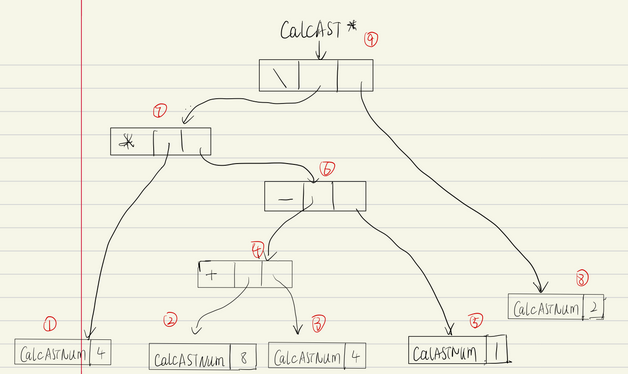 CalcAST *
⑨
\
⑦
*
⑥
−
④
+
⑧
CalcASTNum 2
①
CalcASTNum 4
②
CalcASTNum 8
③
CalcASTNum 4
⑤
CalASTNUM 1